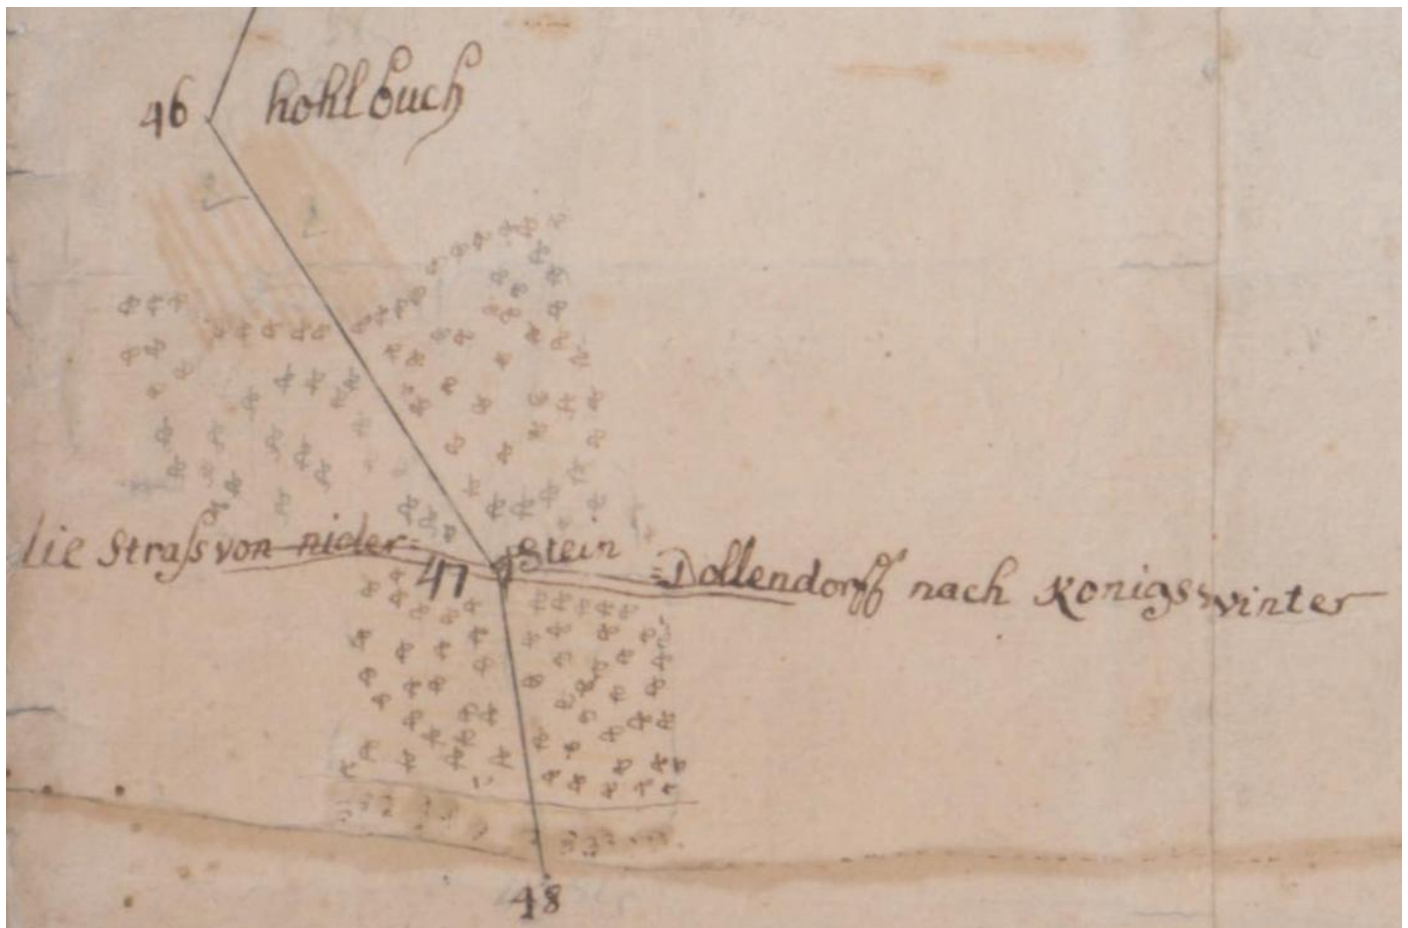 46 hohlbuch
die Straß von nider= 47 Stein =Dollendorff nach Konigswinter
48